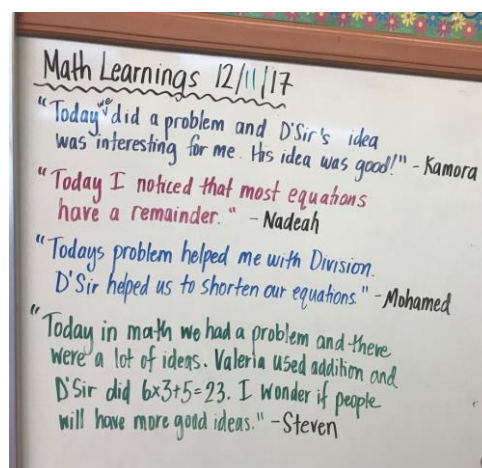 Math Learnings 12/11/17
"Today we did a problem and D'Sir's idea
was interesting for me. His idea was good!" - Kamora
"Today I noticed that most equations
have a remainder." - Nadeah
"Todays problem helped me with Division.
D'Sir helped us to shorten our equations." - Mohamed
"Today in math we had a problem and there
were a lot of ideas. Valeria used addition and
D'Sir did 6x3+5=23. I wonder if people
will have more good ideas." - Steven